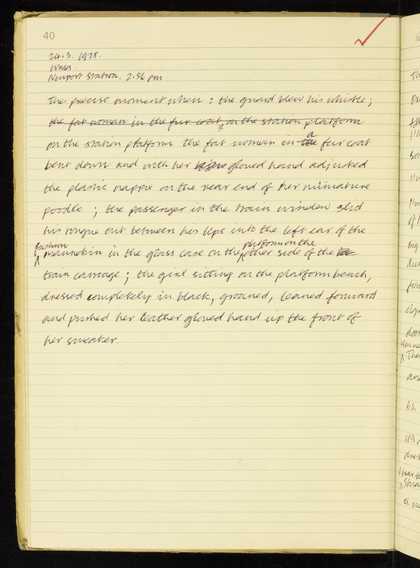 40
24.3.1978.
Wales
Newport Station. 2.56 pm
The precise moment when: the guard blew his whistle;
the fat woman in the fur coat, on the station platform
on the station platform the fat woman in the a fur coat
bent down and with her gloved hand adjusted
the plastic nappie on the rear end of her miniature
poodle; the passenger in the train window slid
his tongue out between his lips into the left ear of the
fashion platform on the
mannekin in the glass case on the other side of the
train carriage; the girl sitting on the platform bench,
dressed completely in black, groaned, leaned forward
and pushed her leather gloved hand up the front of
her sweater.